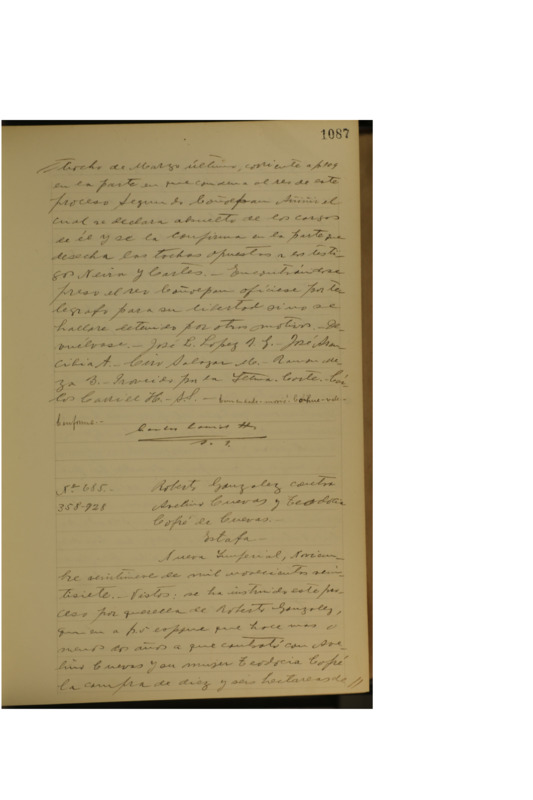 1087
tiocho de Marzo último, corriente a fs
en la parte en que condena al reo de este
proceso Segundo Cañoepan Animal
cual se declara absuelto de los cargos
de él y se la confirma en la parte que
desecha las tachas opuestas a los testi-
gos Neira y Cartes. - Encontrándose
preso el reo Cañoepan ofíciese por te-
légrafo para su libertad si no se
hallare detenido por otro motivo. - De-
vuélvase. - José L. López A. G. - José
cibia A. - Ciro Salazar M. - Ramon
za B. - Proveido por la Iltma. Corte. Cár-
los Carriel H. - S.S. -
Conforme. -
Carlos Carriel H.
S. S.
Nº 685. - Roberto Gonzalez contra
358-928 Avelino Cuevas y Teodocia
Cofré de Cuevas. -
Estafa -
Nueva Imperial, Noviem-
bre veintinueve de mil novecientos vein-
tisiete. - Vistos: se ha instruido este pro-
ceso por querella de Roberto Gonzalez,
que en a fs expone que hace mas o
menos dos años a que contrató con Ave-
lino Cuevas y su mujer Teodocia Cofré
la compra de diez y seis hectareas de //